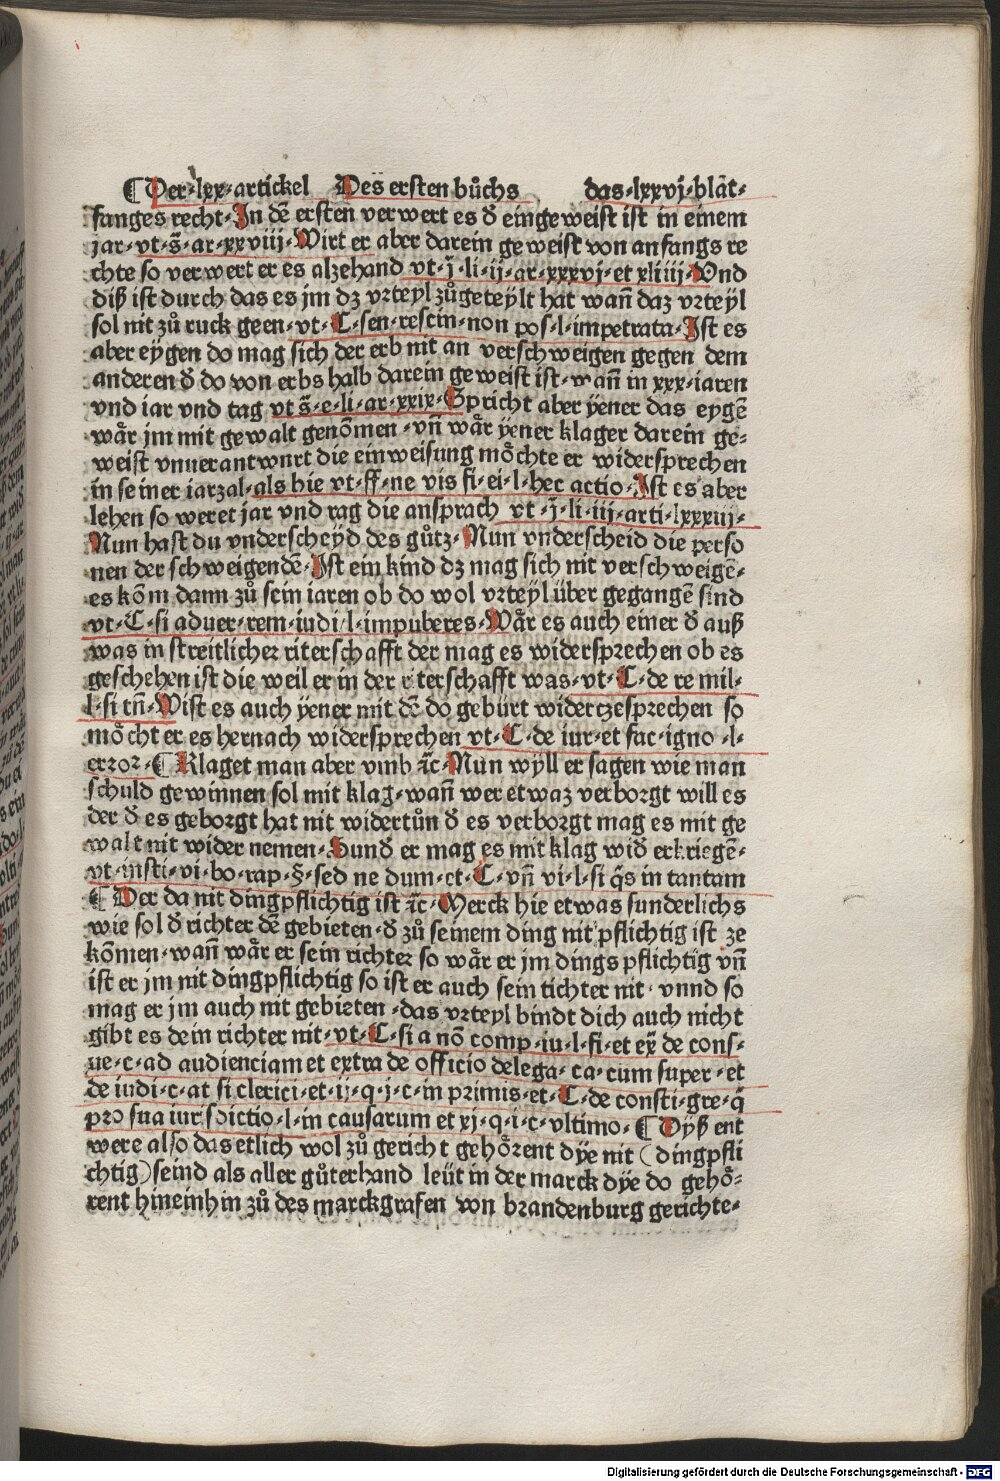 ¶ Der·lxx·artickel Des ersten bůchs das·lxxvj·blat·
fanges recht·In dē ersten verwert es đ eingeweist ist in einem
jar·vt·s̄·ar·xxviij·Wirt er aber darein geweist von anfangs re
chte so verwert er es alzehand vt·j̄·li·ij·ar·xxxvj·et xliiij·Vnd
diß ist durch das es jm dz vrteyl zůgeteylt hat wañ daz vrteyl
sol nit zů ruck geen·vt·C·sen·rescin·non pos·l·impetrata·Ist es
aber eygen do mag sich der erb nit an verschweigen gegen dem
anderen đ do von erbs halb darein geweist ist·wañ in xxx·iaren
vnd iar vnd tag vt s̄·e·li·ar·xxix·Spricht aber ÿener das eygē
wår jm mit gewalt genōmen·vñ wår ÿener klager darein ge·
weist vnuerantwurt die einweisung mo̊chte er widersprechen
in seiner iarzal·als hie vt·ff·ne vis fi·ei·l·hec actio·Ist es aber
lehen so weret jar vnd tag die ansprach vt·j̄·li·iij·arti·lxxxiij·
Nun hast du vnderscheyd des gůtz·Nun vnderscheid die perso
nen der schweigendē·Ist ein kind dz mag sich nit verschweigē·
es kōm dann zů sein iaren ob do wol vrteyl über gegangē sind
vt·C·si aduer·rem·iudi·l·impuberes·Wår es auch einer đ auß
was in streitlicher riterschafft der mag es widersprechen ob es
geschehen ist die weil er in der riterschafft was·vt·C·de re mil·
l·si tñ·Wist es auch ÿener mit dē do gebürt widerczesprechen so
mo̊cht er es hernach widersprechen vt·C·de iur·et fac·igno·l·
error·¶ Klaget man aber vmb ꝛc̄·Nun wyll er sagen wie man
schuld gewinnen sol mit klag·wañ wer etwaz verborgt will es
der đ es geborgt hat nit widertůn đ es verborgt mag es mit ge
walt nit wider nemen·Sunđ er mag es mit klag wiđ erkriegē·
vt·insti·vi·bo·rap·§·sed ne dum·et·C·vñ vi·l·si q̄s in tantam
¶ Der da nit dingpflichtig ist ꝛc̄·Merck hie etwas sunderlichs
wie sol đ richter dē gebieten·đ zů seinem ding nit pflichtig ist ze
kōmen·wañ wår er sein richter so wår er jm dings pflichtig vñ
ist er jm nit dingpflichtig so ist er auch sein tichter nit·vnnd so
mag er jm auch nit gebieten·das vrteyl bindt dich auch nicht
gibt es dein richter nit·vt·C·si a nō comp·iu·l·fi·et ex̄ de cons·
ue·c·ad audienciam et extra de officio delega·ca·cum super·et
de iudi·c·at si clerici·et·ij·q·j·c·in primis·et·C·de consti·gre·q̄
pro sua iurisdictio·l·in causarum et xj·q·i·c·vltimo·¶ Dyß ent
were also das etlich wol zů gericht geho̊rent dÿe nit (dingpfli
chtig) seind als aller gůterhand leüt in der marck dÿe do geho̊·
rent hineinhin zů des marckgrafen von brandenburg gerichte·
Digitalisierung gefördert durch die Deutsche Forschungsgemeinschaft - DFG